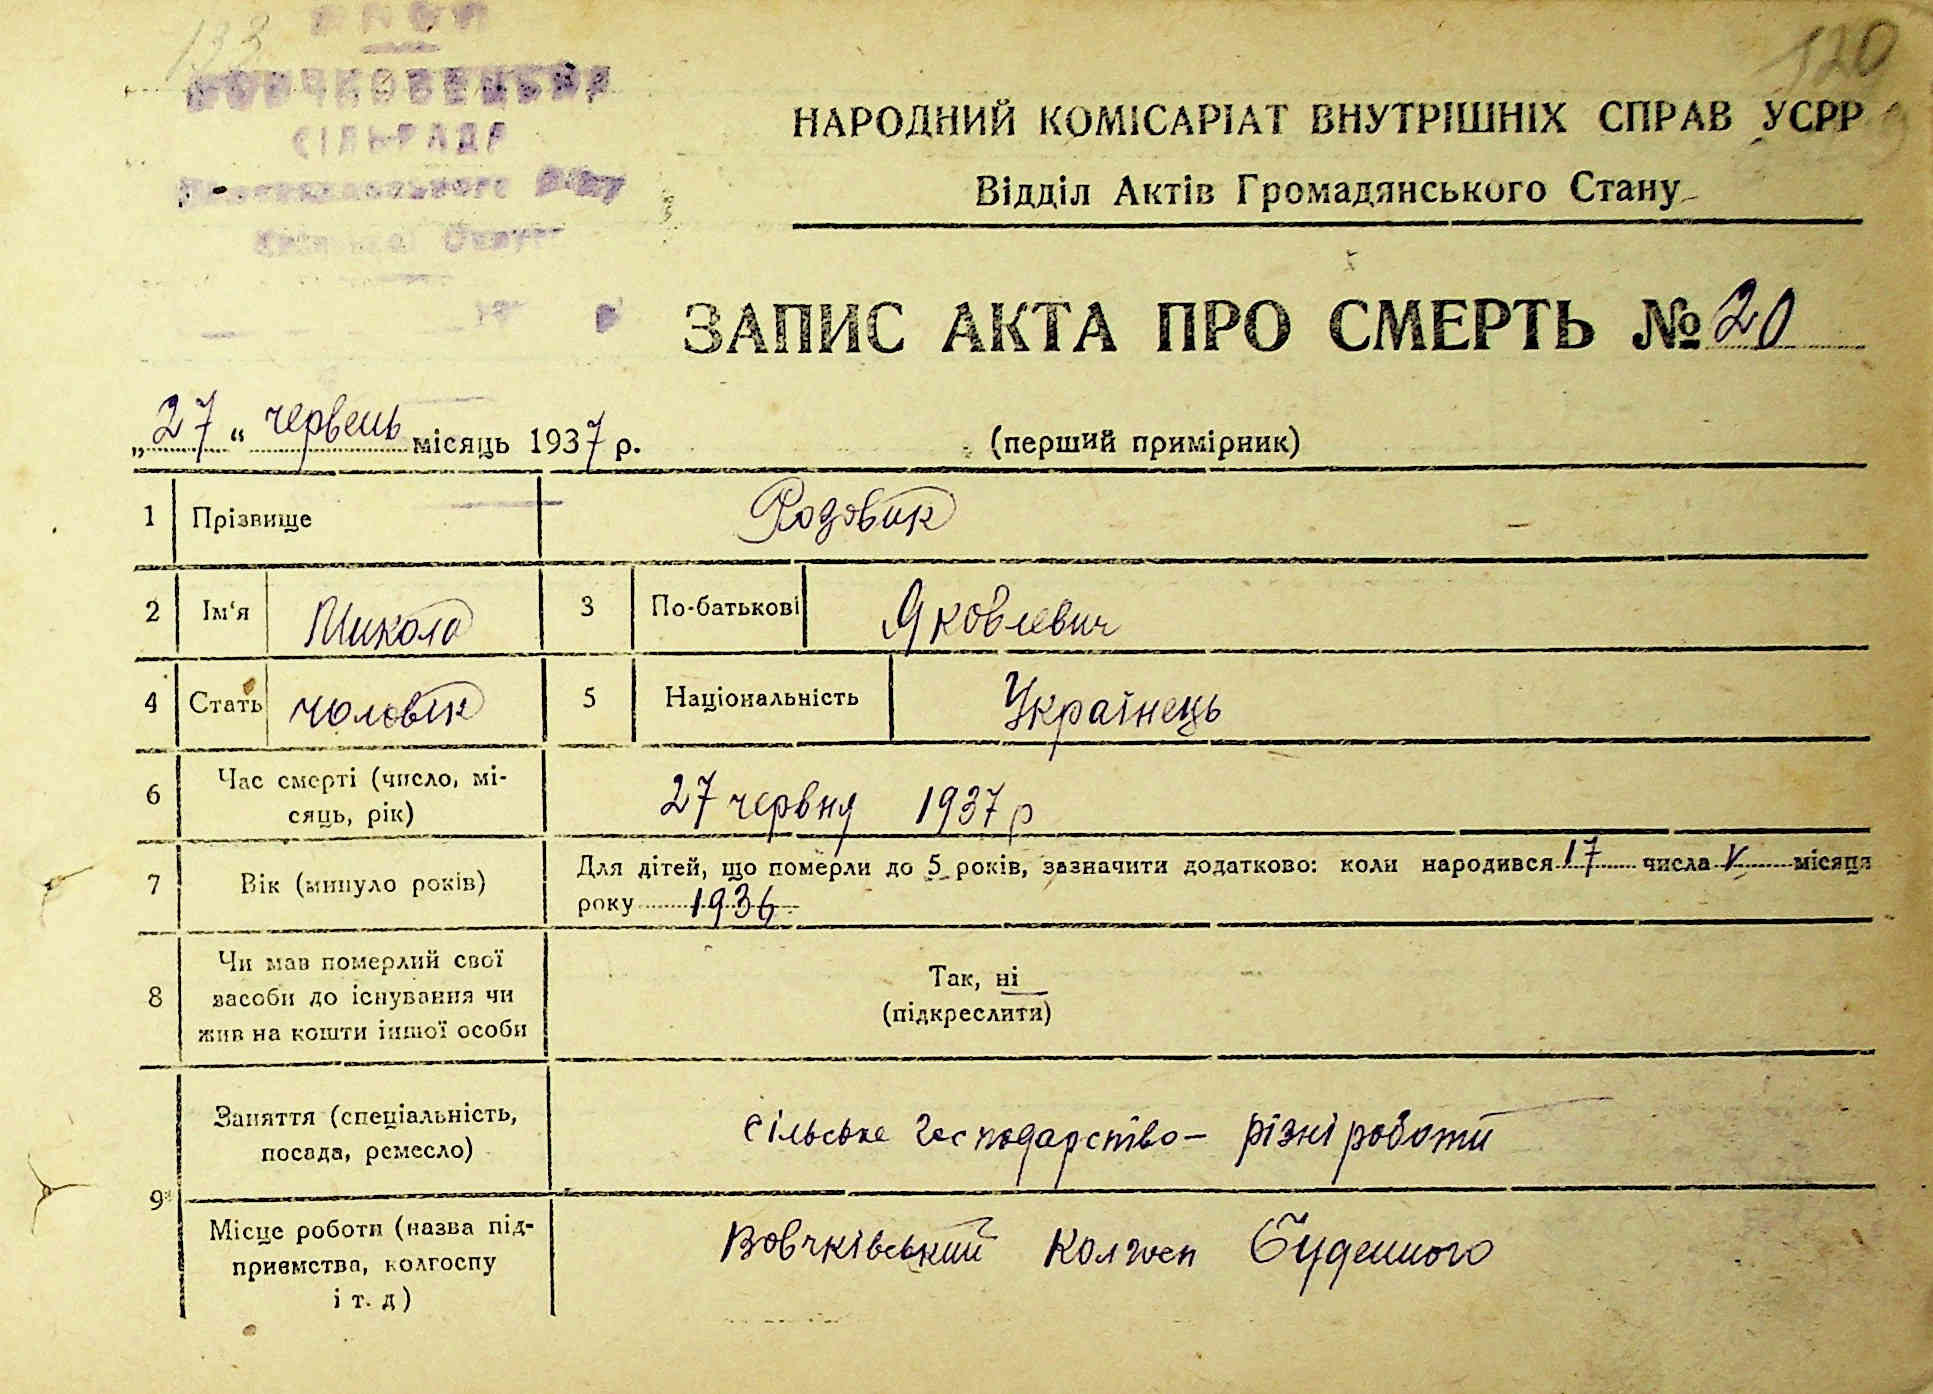 133
120
СІЛЬРАДА
НАРОДНИЙ КОМІСАРІАТ ВНУТРІШНІХ СПРАВ УСРР
Відділ Актів Громадянського Стану
ЗАПИС АКТА ПРО СМЕРТЬ № 20
„27“ червень місяць 1937 р. (перший примірник)
1 Прізвище Родовик
2 Ім'я Микола 3 По-батькові Яковлевич
4 Стать чоловік 5 Національність Українець
6 Час смерті (число, мі-
сяць, рік) 27 червня 1937 р
7 Вік (минуло років) Для дітей, що померли до 5 років, зазначити додатково: коли народився 17 числа V місяця
року 1936
8 Чи мав померлий свої
засоби до існування чи
жив на кошти іншої особи
Так, ні
(підкреслити)
9 Заняття (спеціальність,
посада, ремесло) сільське господарство – різні роботи
Місце роботи (назва під-
приємства, колгоспу
і т. д) Вовчківський колгосп Буденного